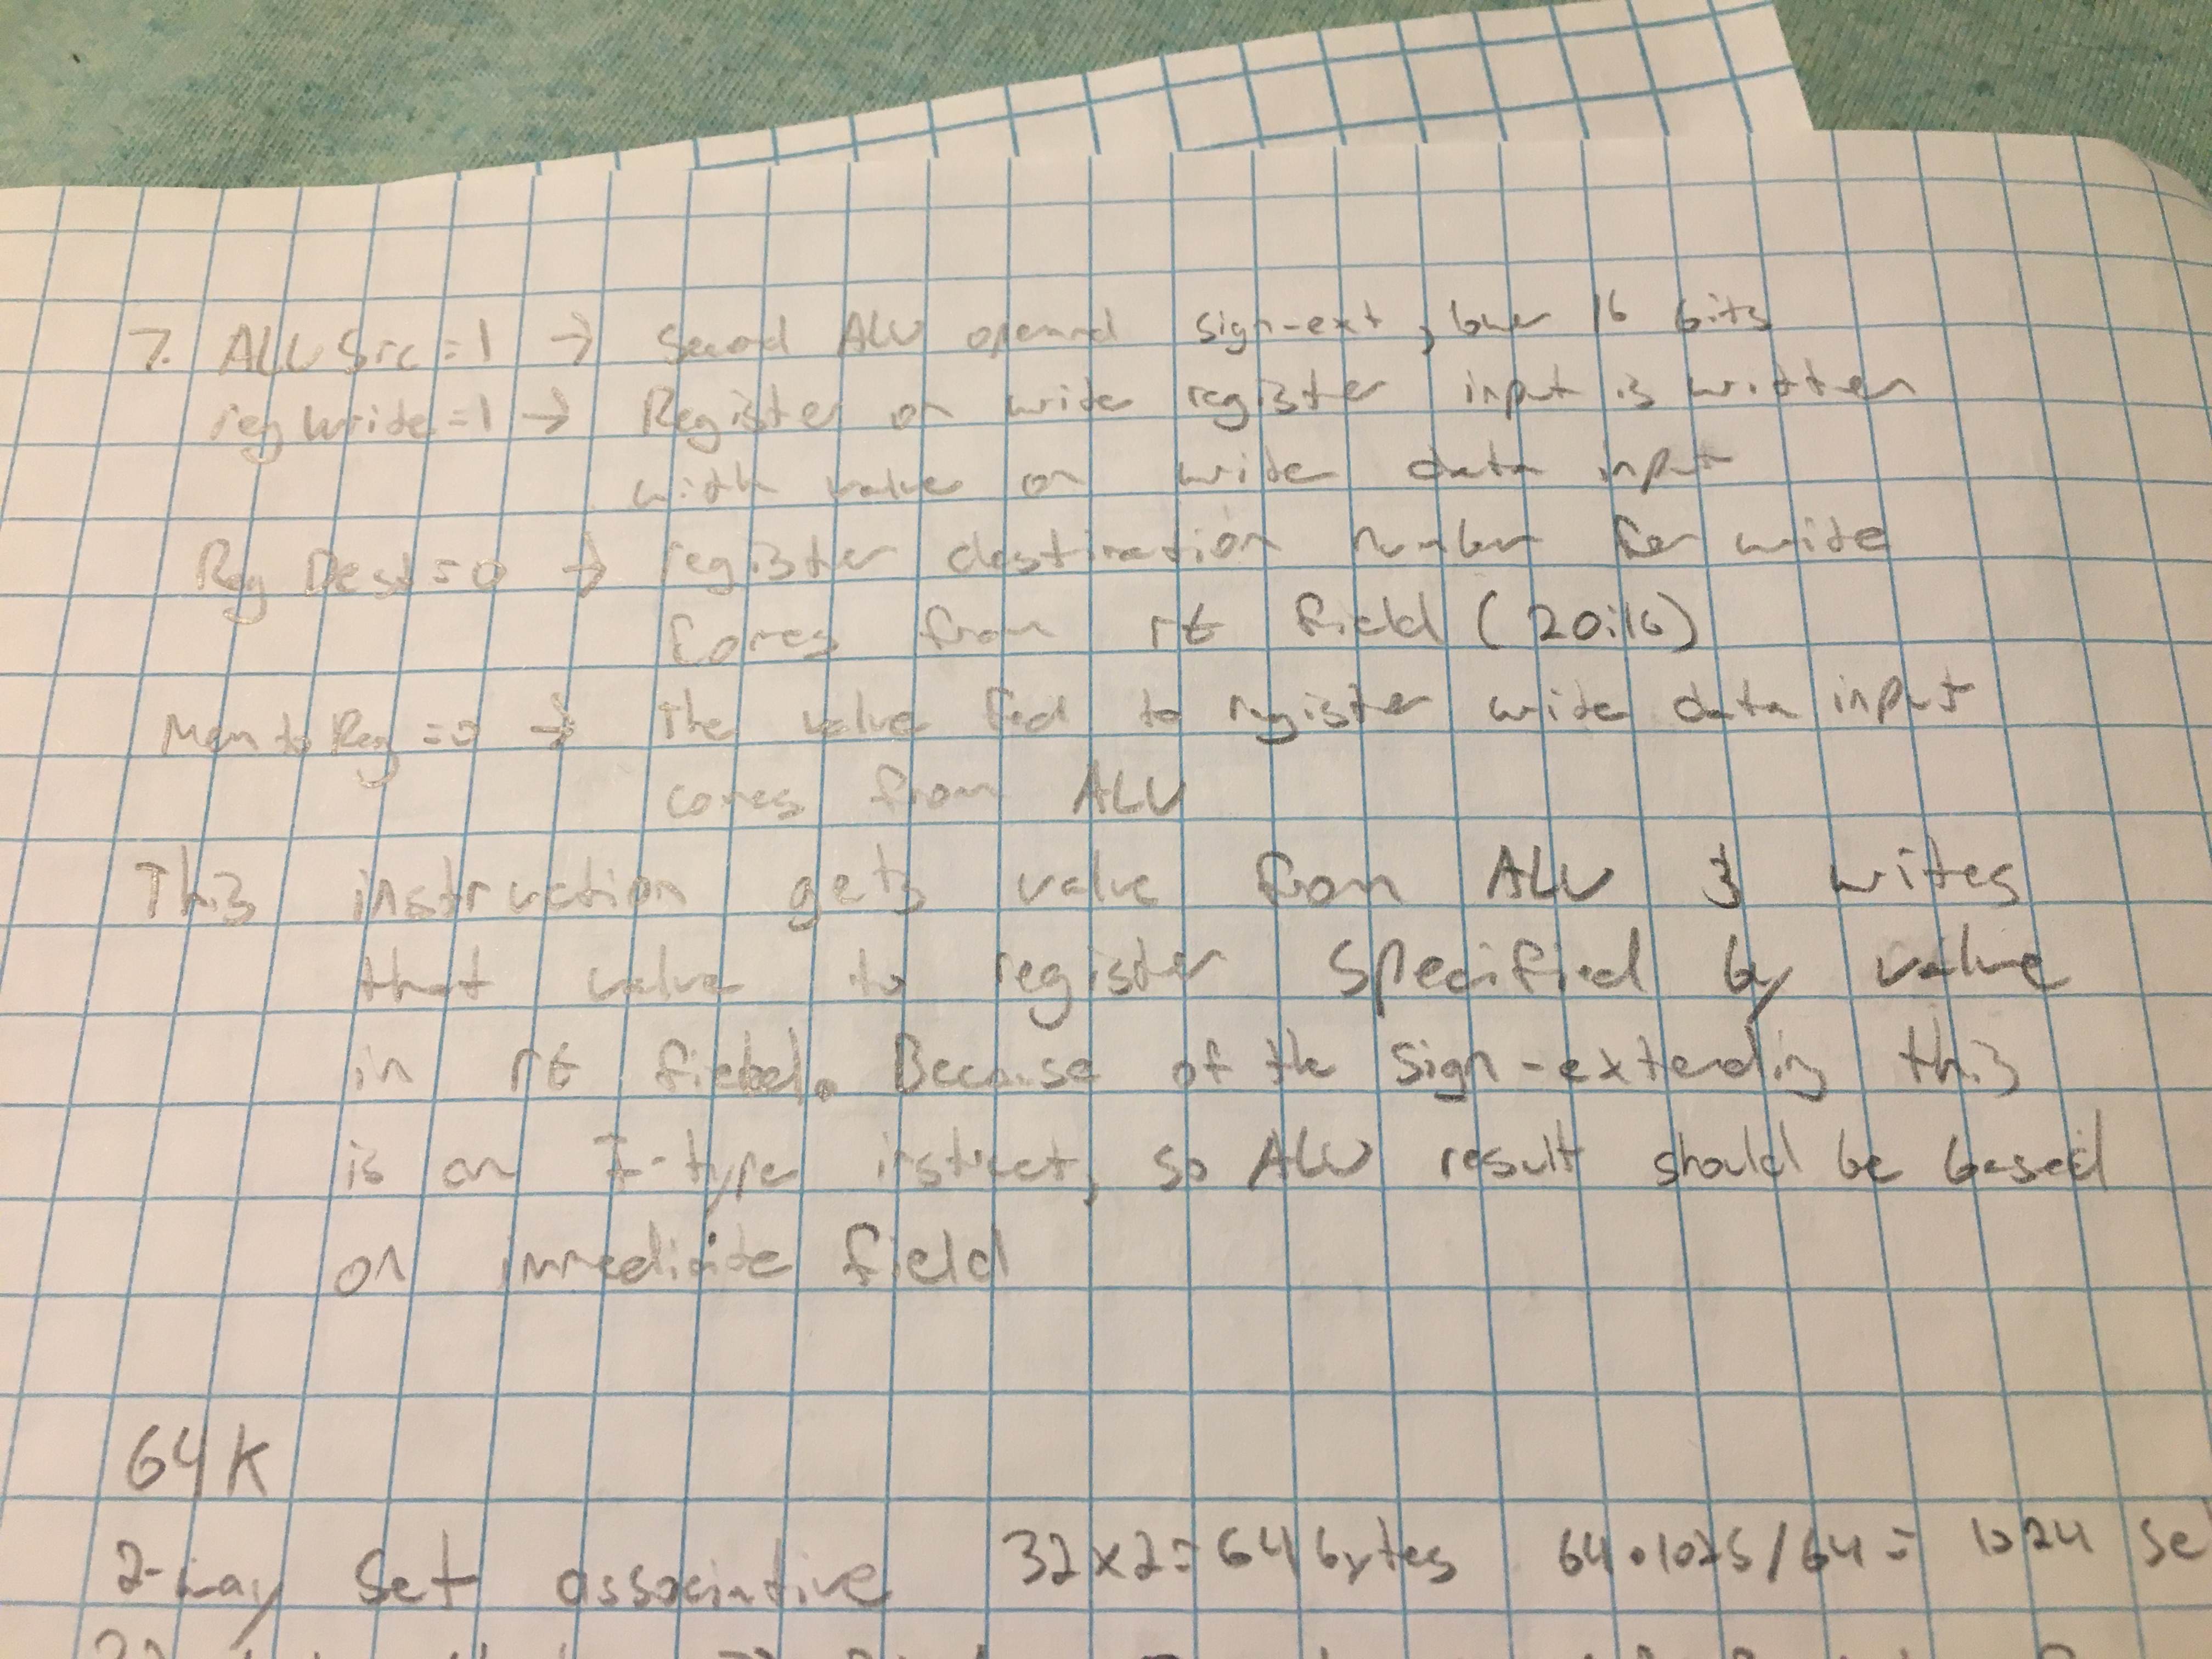 7. ALU Src = 1 → second ALU operand sign-ext, lower 16 bits
regwrite = 1 → Register on write register input is written
with value on write data input
Reg Dest = 0 → register destination number for write
comes from rt field (20:16)
Mem to Reg = 0 → the value fed to register write data input
comes from ALU
This instruction gets value from ALU & writes
that value to register specified by value
in rt field. Because of the sign-extending this
is an I-type instruct, so ALU result should be based
on immediate field
64K
2-way set associative 32x2=64 bytes 64·1025/64 = 1024 se